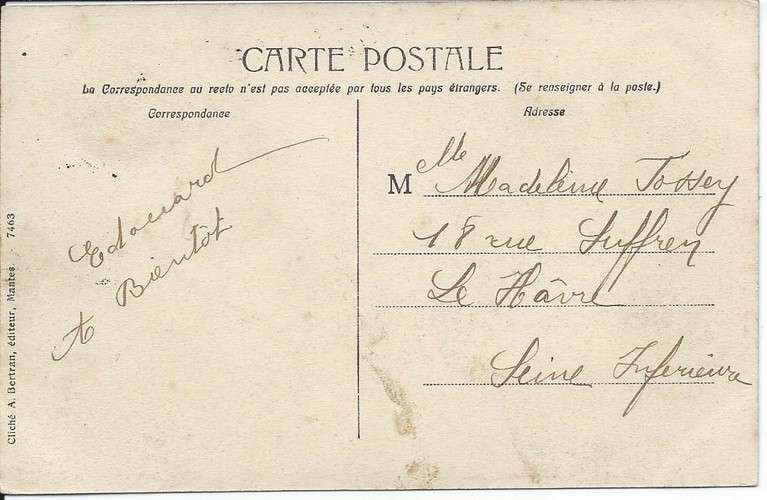 CARTE POSTALE
La Correspondance au recto n'est pas acceptée par tous les pays étrangers. (Se renseigner à la poste.)
Correspondance
Adresse
Edouard
A Bientôt
M Mlle Madeleine Tossey
18 rue Suffren
Le Hâvre
Seine Inferieure
Cliché A. Bertran, éditeur, Mantes. 7463